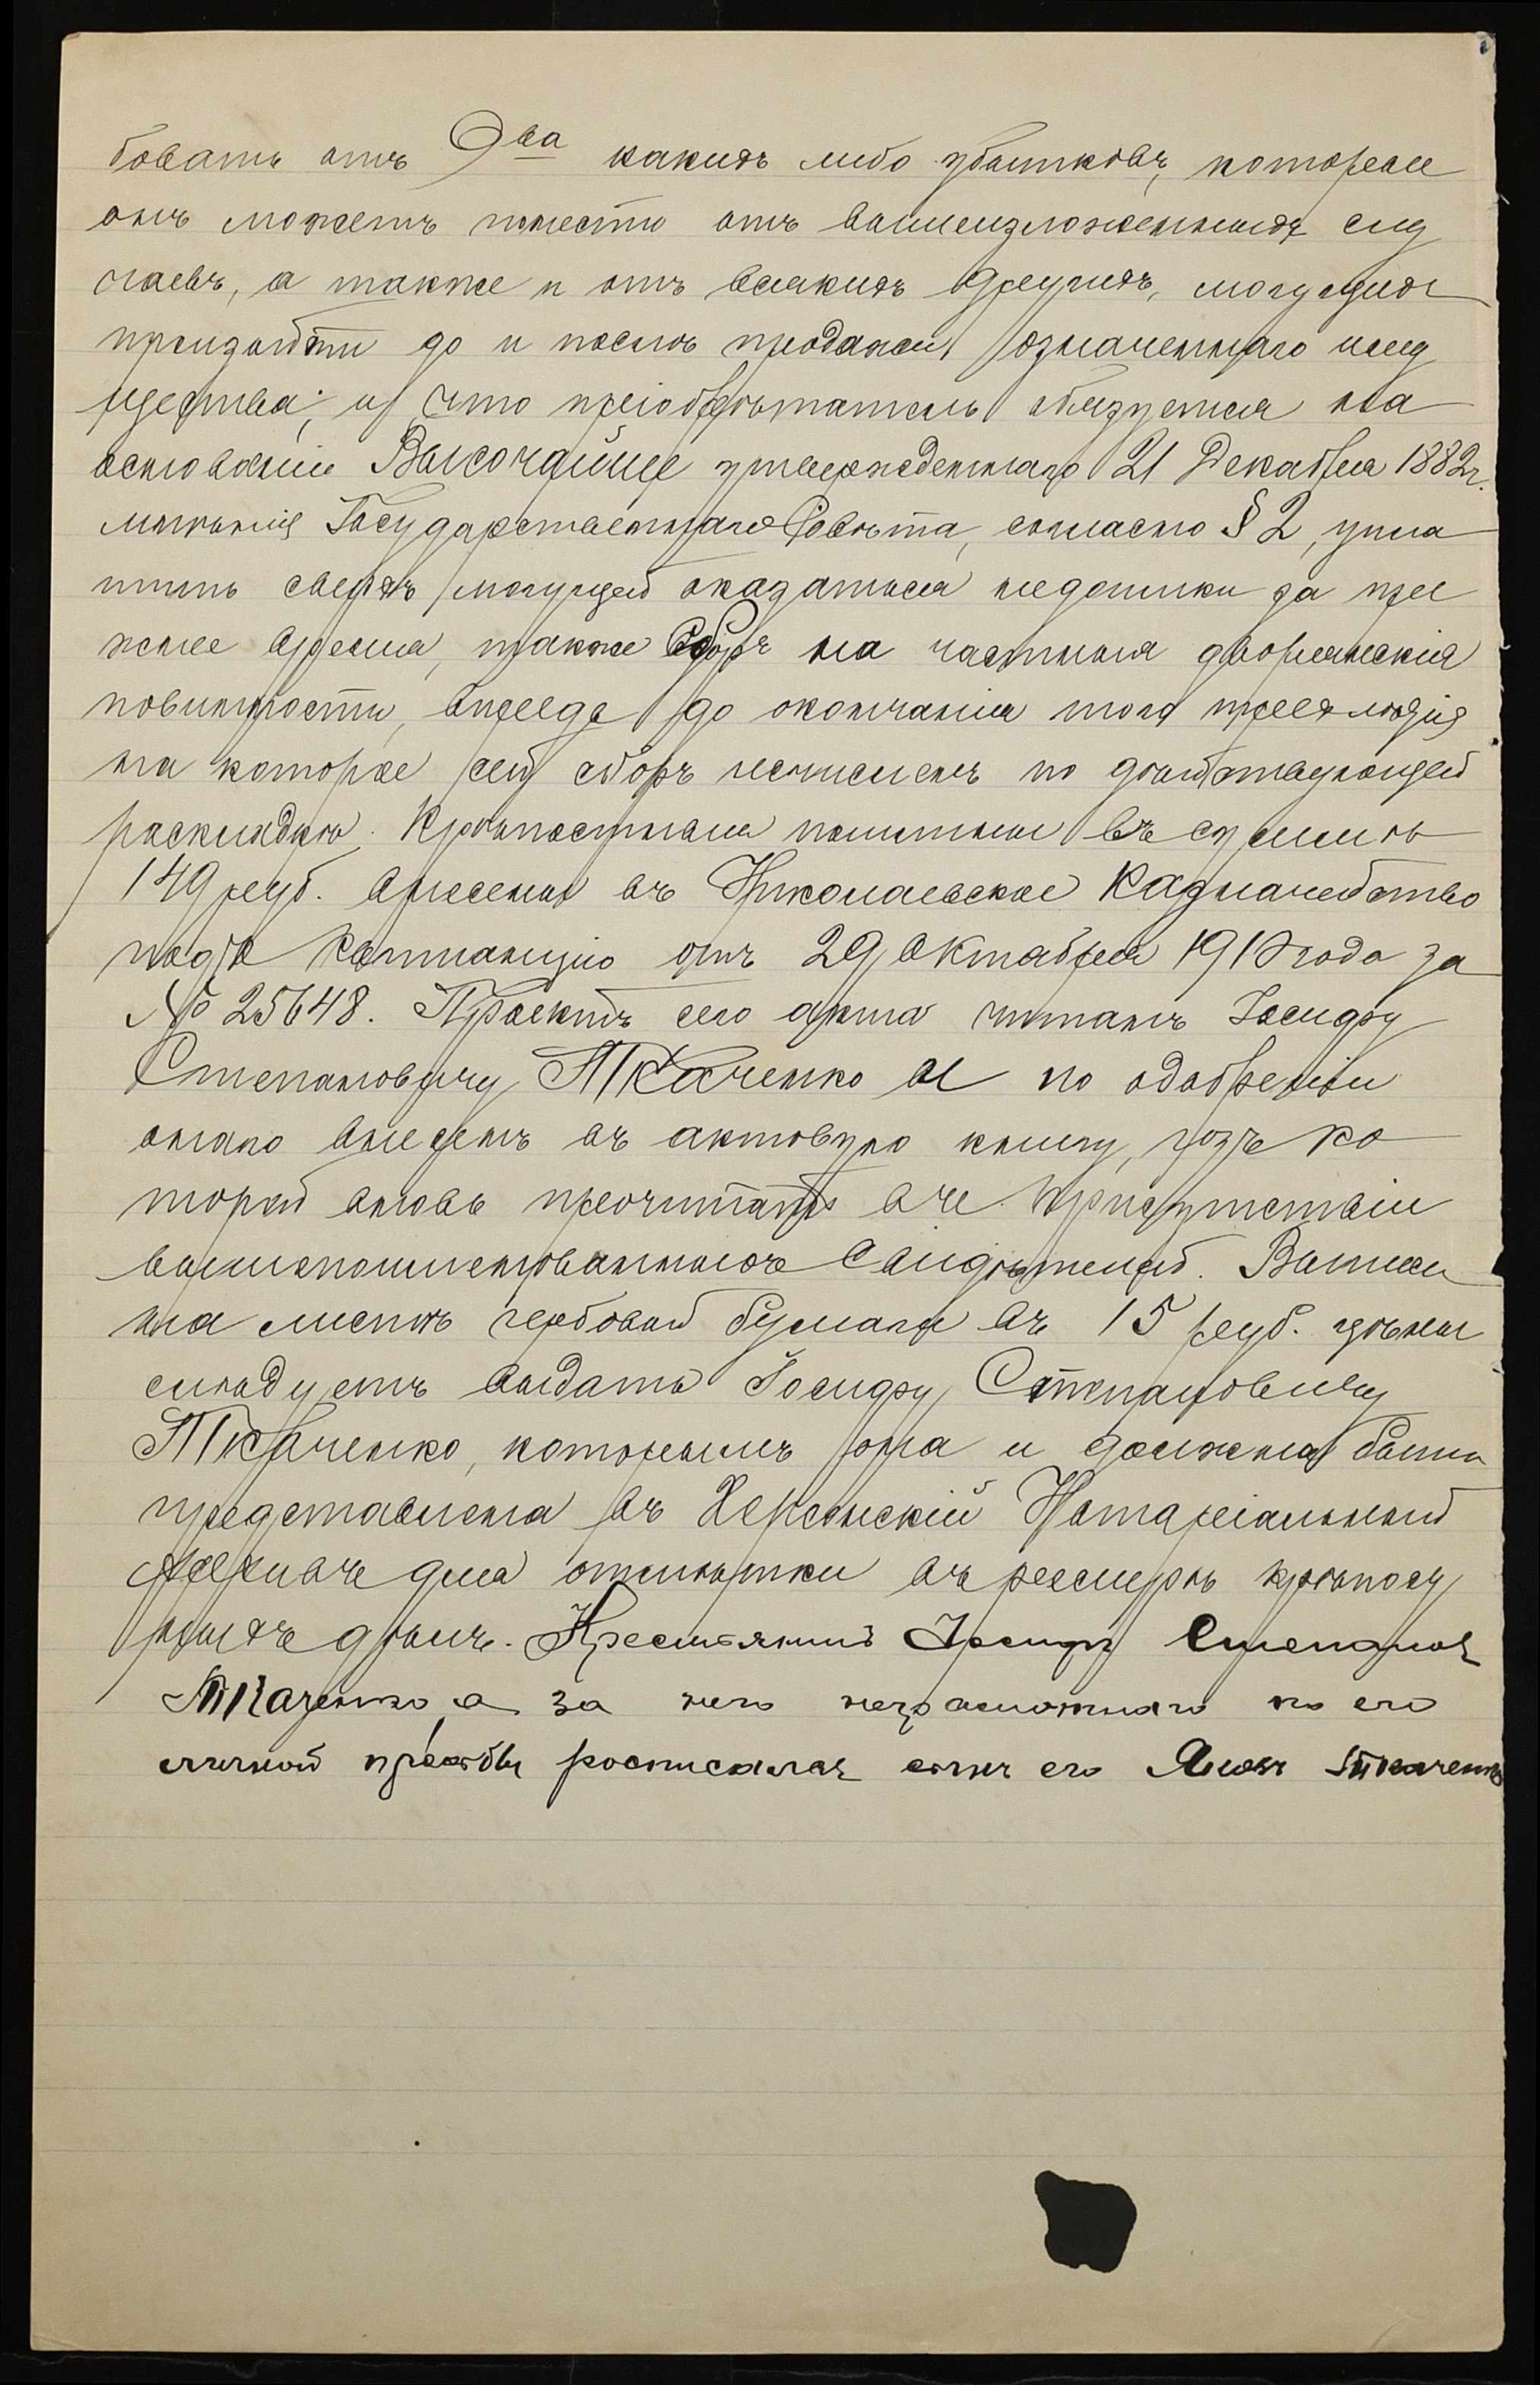 бовать отъ О-ва какихъ либо убытковъ, которые
онъ можетъ понести отъ вышеизложенныхъ слу
чаевъ, а также и отъ всякихъ другихъ, могущихъ
произойти до и послѣ продажи означеннаго иму
щества; и что пріобрѣтатель обязуется на
основаніи Высочайше утвержденнаго 21 Декабря 1882г.
мнѣнія Государственнаго Совѣта, согласно § 2, упла
тить сверхъ могущей оказаться недоимки за пре
жнее время, также сборъ на частныя дворянскія
повинности, впредь до окончанія того трехлѣтія
на которое сей сборъ исчисленъ по дѣйствующей
раскладкѣ. Крѣпостныя пошлины въ суммѣ
149 руб. внесены въ Николаевское Казначейство
подъ квитанцію отъ 29 Октября 1910 года за
№ 25648. Проектъ сего акта читанъ Іосифу
Степановичу Ткаченко и по одобреніи
онаго внесенъ въ актовую книгу, изъ ко
торой вновь прочитанъ въ присутствіи
вышепоименованныхъ свидѣтелей. Выпись
на листѣ гербовой бумаги въ 15 руб. цѣны
слѣдуетъ выдать Іосифу Степановичу
Ткаченко, которымъ она и должна быть
представлена въ Херсонскій Нотаріальный
Архивъ для отмѣтки въ реестрѣ крѣпост
ныхъ дѣлъ. Крестьянинъ Іосифъ Степановъ
Ткаченко, а за него неграмотнаго по его
личной просьбѣ росписался сынъ его Яковъ Ткаченко